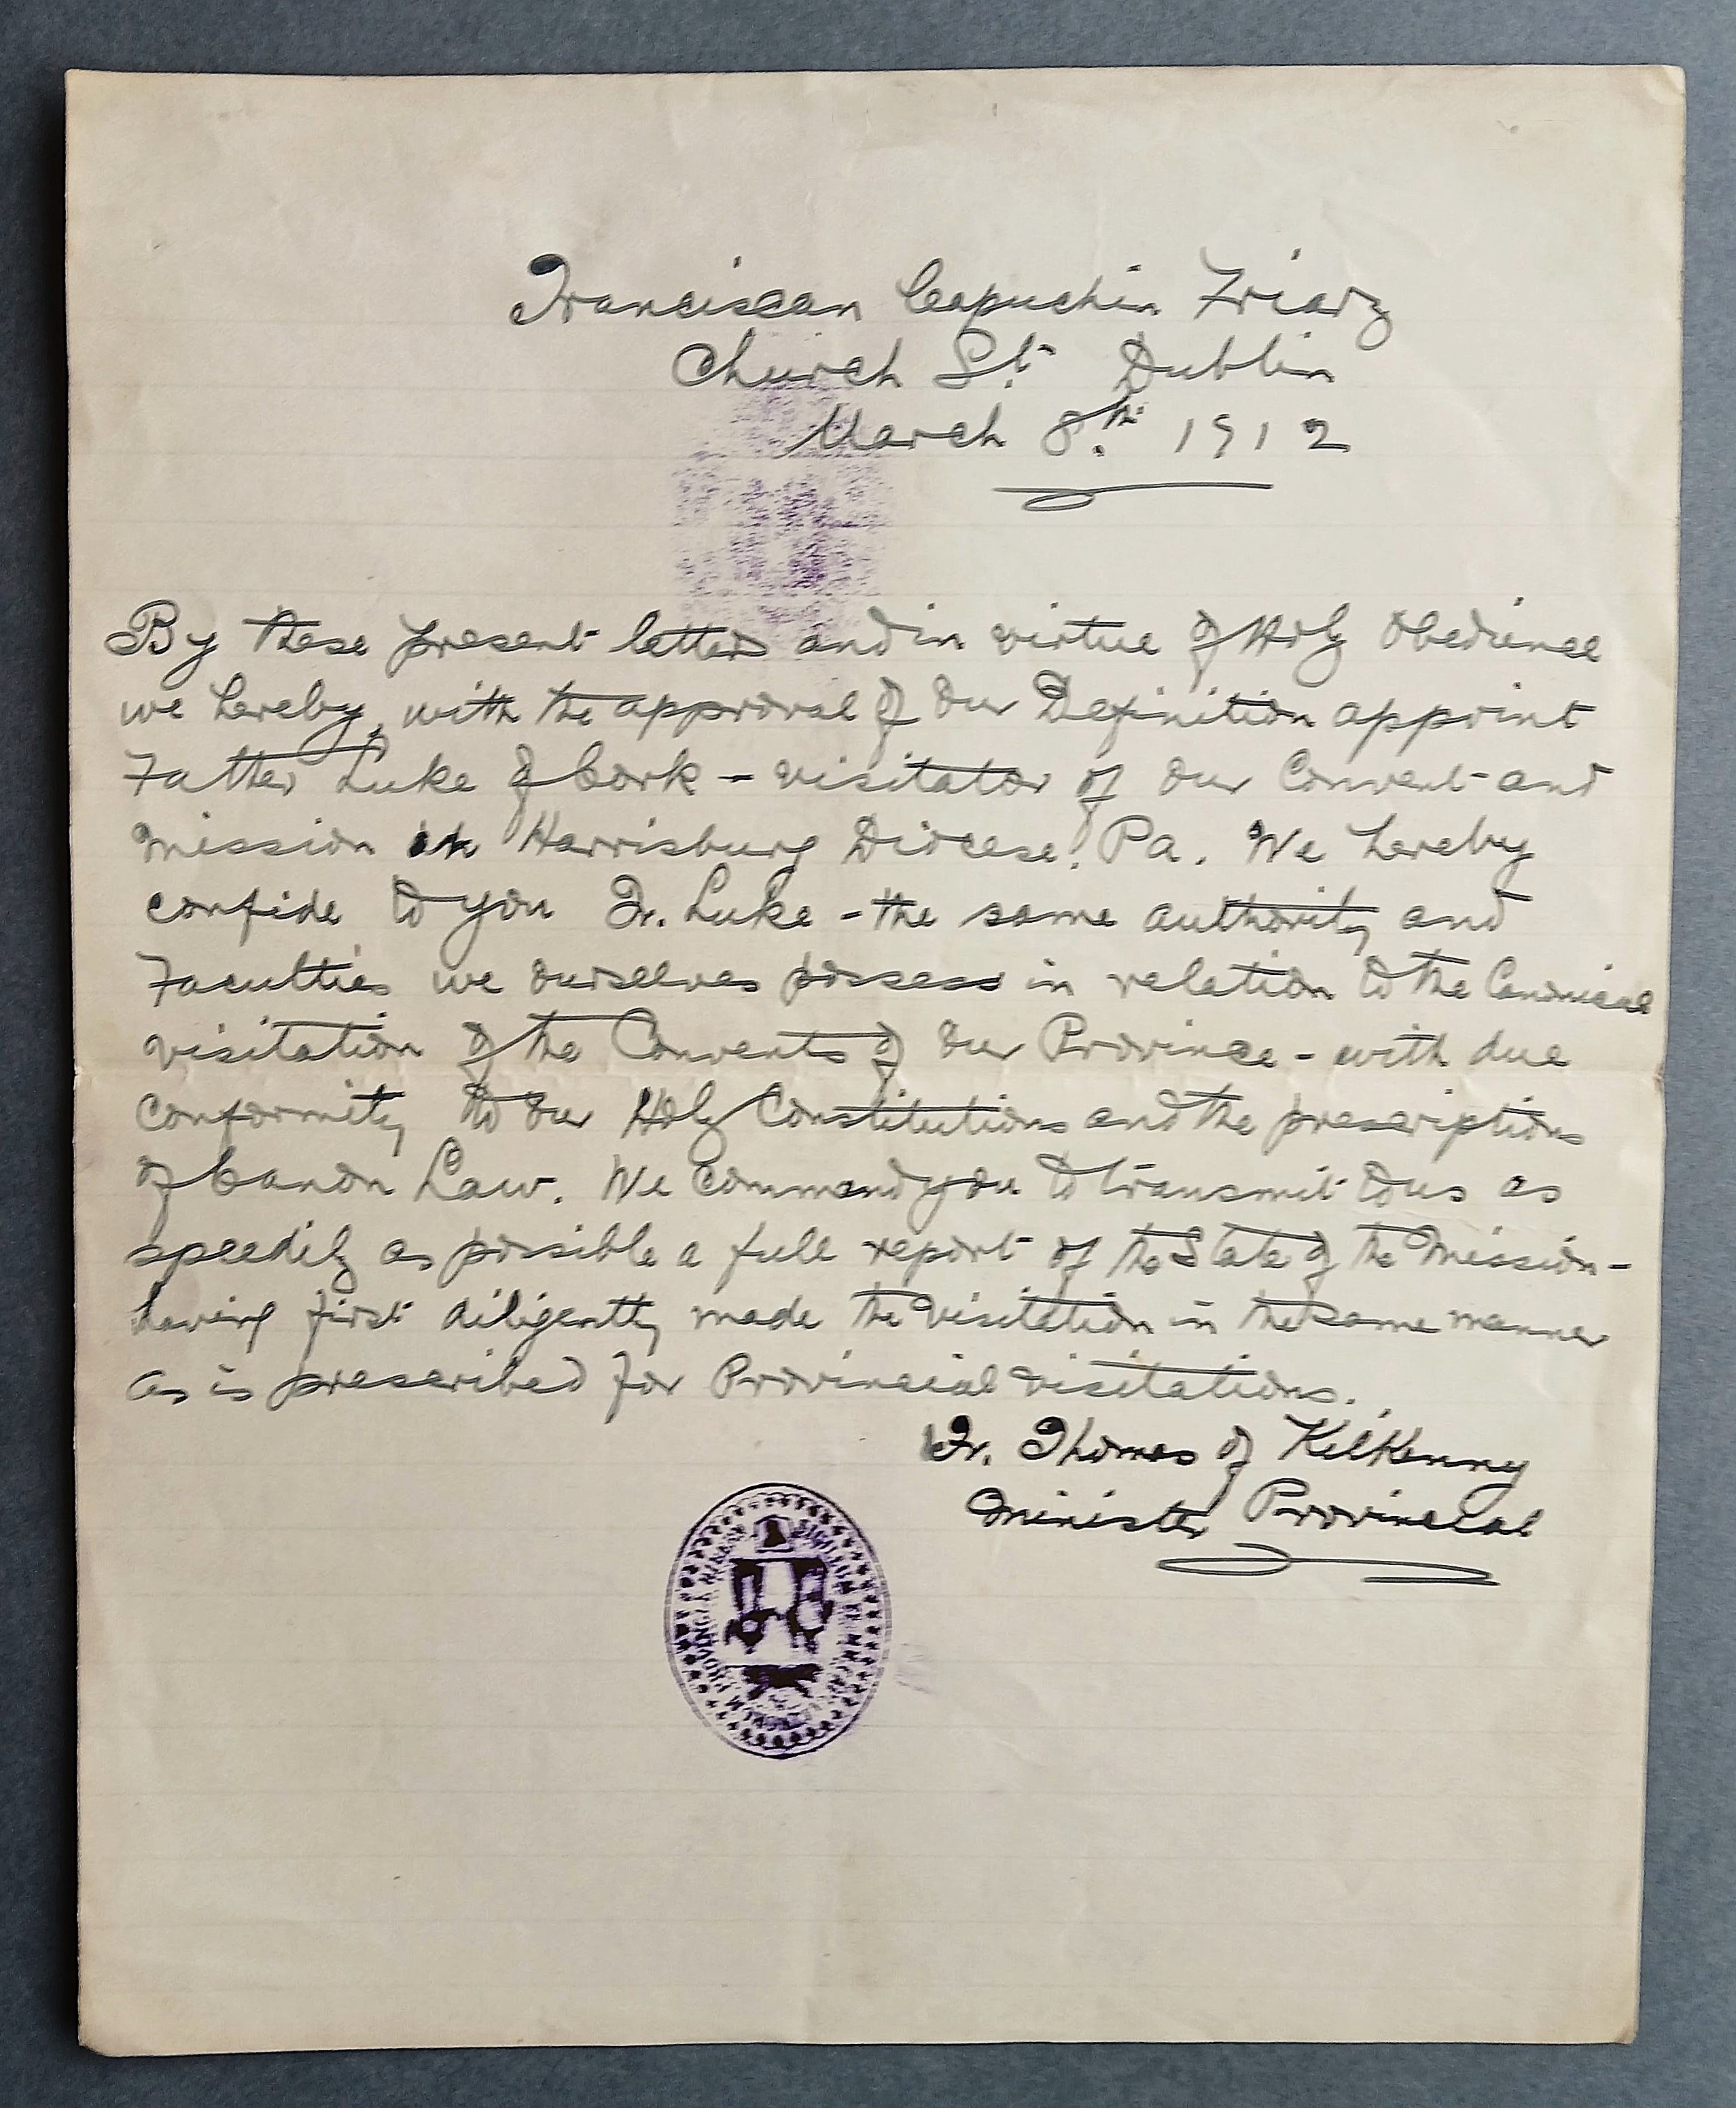 Franciscan Capuchin Friary
Church St. Dublin
March 8.th 1912
By these present letters and in virtue of Holy Obedience
we hereby, with the approval of our Definition appoint
Father Luke of Cork - visitator of our Convent and
Mission in Harrisburg Diocese. Pa. We hereby
confide to you Fr. Luke - the same authority and
Faculties we ourselves possess in relation to the Canonical
visitation of the Convents of our Province - with due
conformity to our Holy Constitutions and the prescriptions
of Canon Law. We command you to transmit to us as
speedily as possible a full report of the State of the Mission -
having first diligently made the Visitation in the same manner
as is prescribed for Provincial visitations.
Fr. Thomas of Kilkenny
Minister Provincial